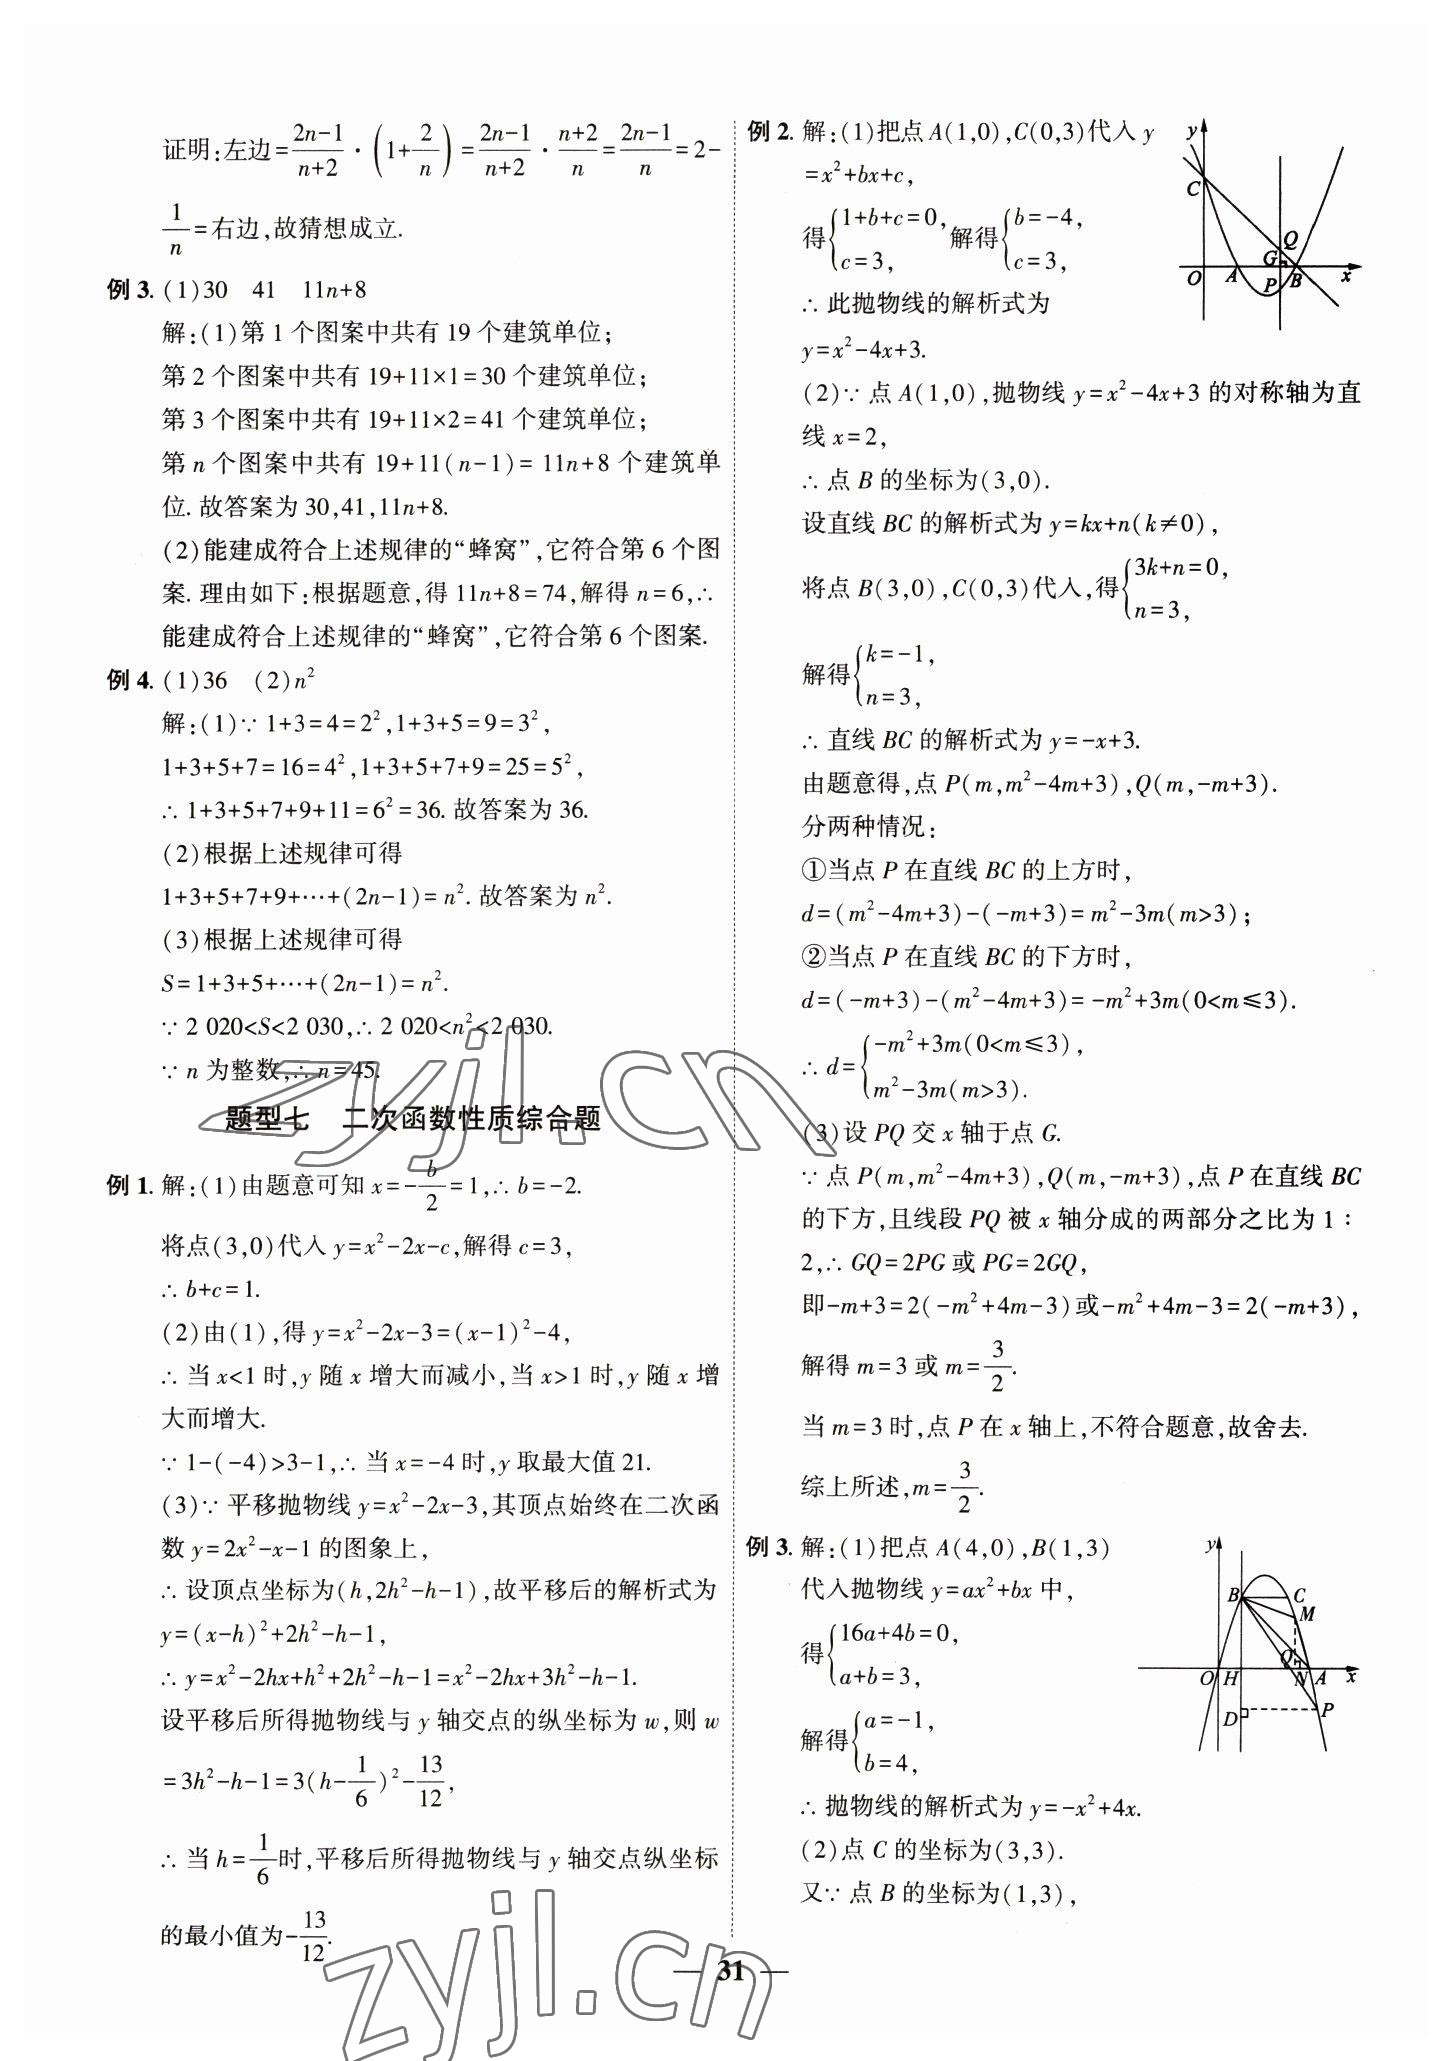 证明:左边=\frac{2n-1}{n+2}·(1+\frac{2}{n})=\frac{2n-1}{n+2}·\frac{n+2}{n}=\frac{2n-1}{n}=2-
\frac{1}{n}=右边,故猜想成立.
例 3. (1)30 41 11n+8
解:(1)第 1 个图案中共有 19 个建筑单位;
第 2 个图案中共有 19+11×1=30 个建筑单位;
第 3 个图案中共有 19+11×2=41 个建筑单位;
第 n 个图案中共有 19+11(n-1)= 11n+8 个建筑单
位. 故答案为 30,41,11n+8.
(2)能建成符合上述规律的“蜂窝”,它符合第 6 个图
案. 理由如下:根据题意,得 11n+8=74,解得 n=6,∴
能建成符合上述规律的“蜂窝”,它符合第 6 个图案.
例 4. (1)36 (2)n²
解:(1)∵ 1+3=4=2²,1+3+5=9=3²,
1+3+5+7=16=4²,1+3+5+7+9=25=5²,
∴ 1+3+5+7+9+11=6²=36. 故答案为 36.
(2)根据上述规律可得
1+3+5+7+9+…+(2n-1)=n². 故答案为 n².
(3)根据上述规律可得
S=1+3+5+…+(2n-1)=n².
∵ 2 020<S<2 030,∴ 2 020<n²<2 030.
∵ n 为整数,∴ n=45.
题型七 二次函数性质综合题
例 1. 解:(1)由题意可知 x=-\frac{b}{2}=1,∴ b=-2.
将点(3,0)代入 y=x²-2x-c,解得 c=3,
∴ b+c=1.
(2)由(1),得 y=x²-2x-3=(x-1)²-4,
∴ 当 x<1 时,y 随 x 增大而减小,当 x>1 时,y 随 x 增
大而增大.
∵ 1-(-4)>3-1,∴ 当 x=-4 时,y 取最大值 21.
(3)∵ 平移抛物线 y=x²-2x-3,其顶点始终在二次函
数 y=2x²-x-1 的图象上,
∴ 设顶点坐标为(h,2h²-h-1),故平移后的解析式为
y=(x-h)²+2h²-h-1,
∴ y=x²-2hx+h²+2h²-h-1=x²-2hx+3h²-h-1.
设平移后所得抛物线与 y 轴交点的纵坐标为 w,则 w
=3h²-h-1=3(h-\frac{1}{6})²-\frac{13}{12},
∴ 当 h=\frac{1}{6}时,平移后所得抛物线与 y 轴交点纵坐标
的最小值为-\frac{13}{12}.
例 2. 解:(1)把点 A(1,0),C(0,3)代入 y
=x²+bx+c,
得{1+b+c=0, c=3, 解得{b=-4, c=3,
∴ 此抛物线的解析式为
y=x²-4x+3.
y
C
Q
G
O
A
P
B
x
(2)∵ 点 A(1,0),抛物线 y=x²-4x+3 的对称轴为直
线 x=2,
∴ 点 B 的坐标为(3,0).
设直线 BC 的解析式为 y=kx+n(k≠0),
将点 B(3,0),C(0,3)代入,得{3k+n=0, n=3,
解得{k=-1, n=3,
∴ 直线 BC 的解析式为 y=-x+3.
由题意得,点 P(m,m²-4m+3),Q(m,-m+3).
分两种情况:
①当点 P 在直线 BC 的上方时,
d=(m²-4m+3)-(-m+3)=m²-3m(m>3);
②当点 P 在直线 BC 的下方时,
d=(-m+3)-(m²-4m+3)=-m²+3m(0<m≤3).
∴ d={-m²+3m(0<m≤3), m²-3m(m>3).
(3)设 PQ 交 x 轴于点 G.
∵ 点 P(m,m²-4m+3),Q(m,-m+3),点 P 在直线 BC
的下方,且线段 PQ 被 x 轴分成的两部分之比为 1 :
2,∴ GQ=2PG 或 PG=2GQ,
即-m+3=2(-m²+4m-3)或-m²+4m-3=2(-m+3),
解得 m=3 或 m=\frac{3}{2}.
当 m=3 时,点 P 在 x 轴上,不符合题意,故舍去.
综上所述,m=\frac{3}{2}.
例 3. 解:(1)把点 A(4,0),B(1,3)
代入抛物线 y=ax²+bx 中,
得{16a+4b=0, a+b=3,
解得{a=-1, b=4,
y
B
C
M
Q
O
H
N
A
x
D
P
∴ 抛物线的解析式为 y=-x²+4x.
(2)点 C 的坐标为(3,3).
又∵ 点 B 的坐标为(1,3),
— 31 —
zyjl.cn
zyjl.cn